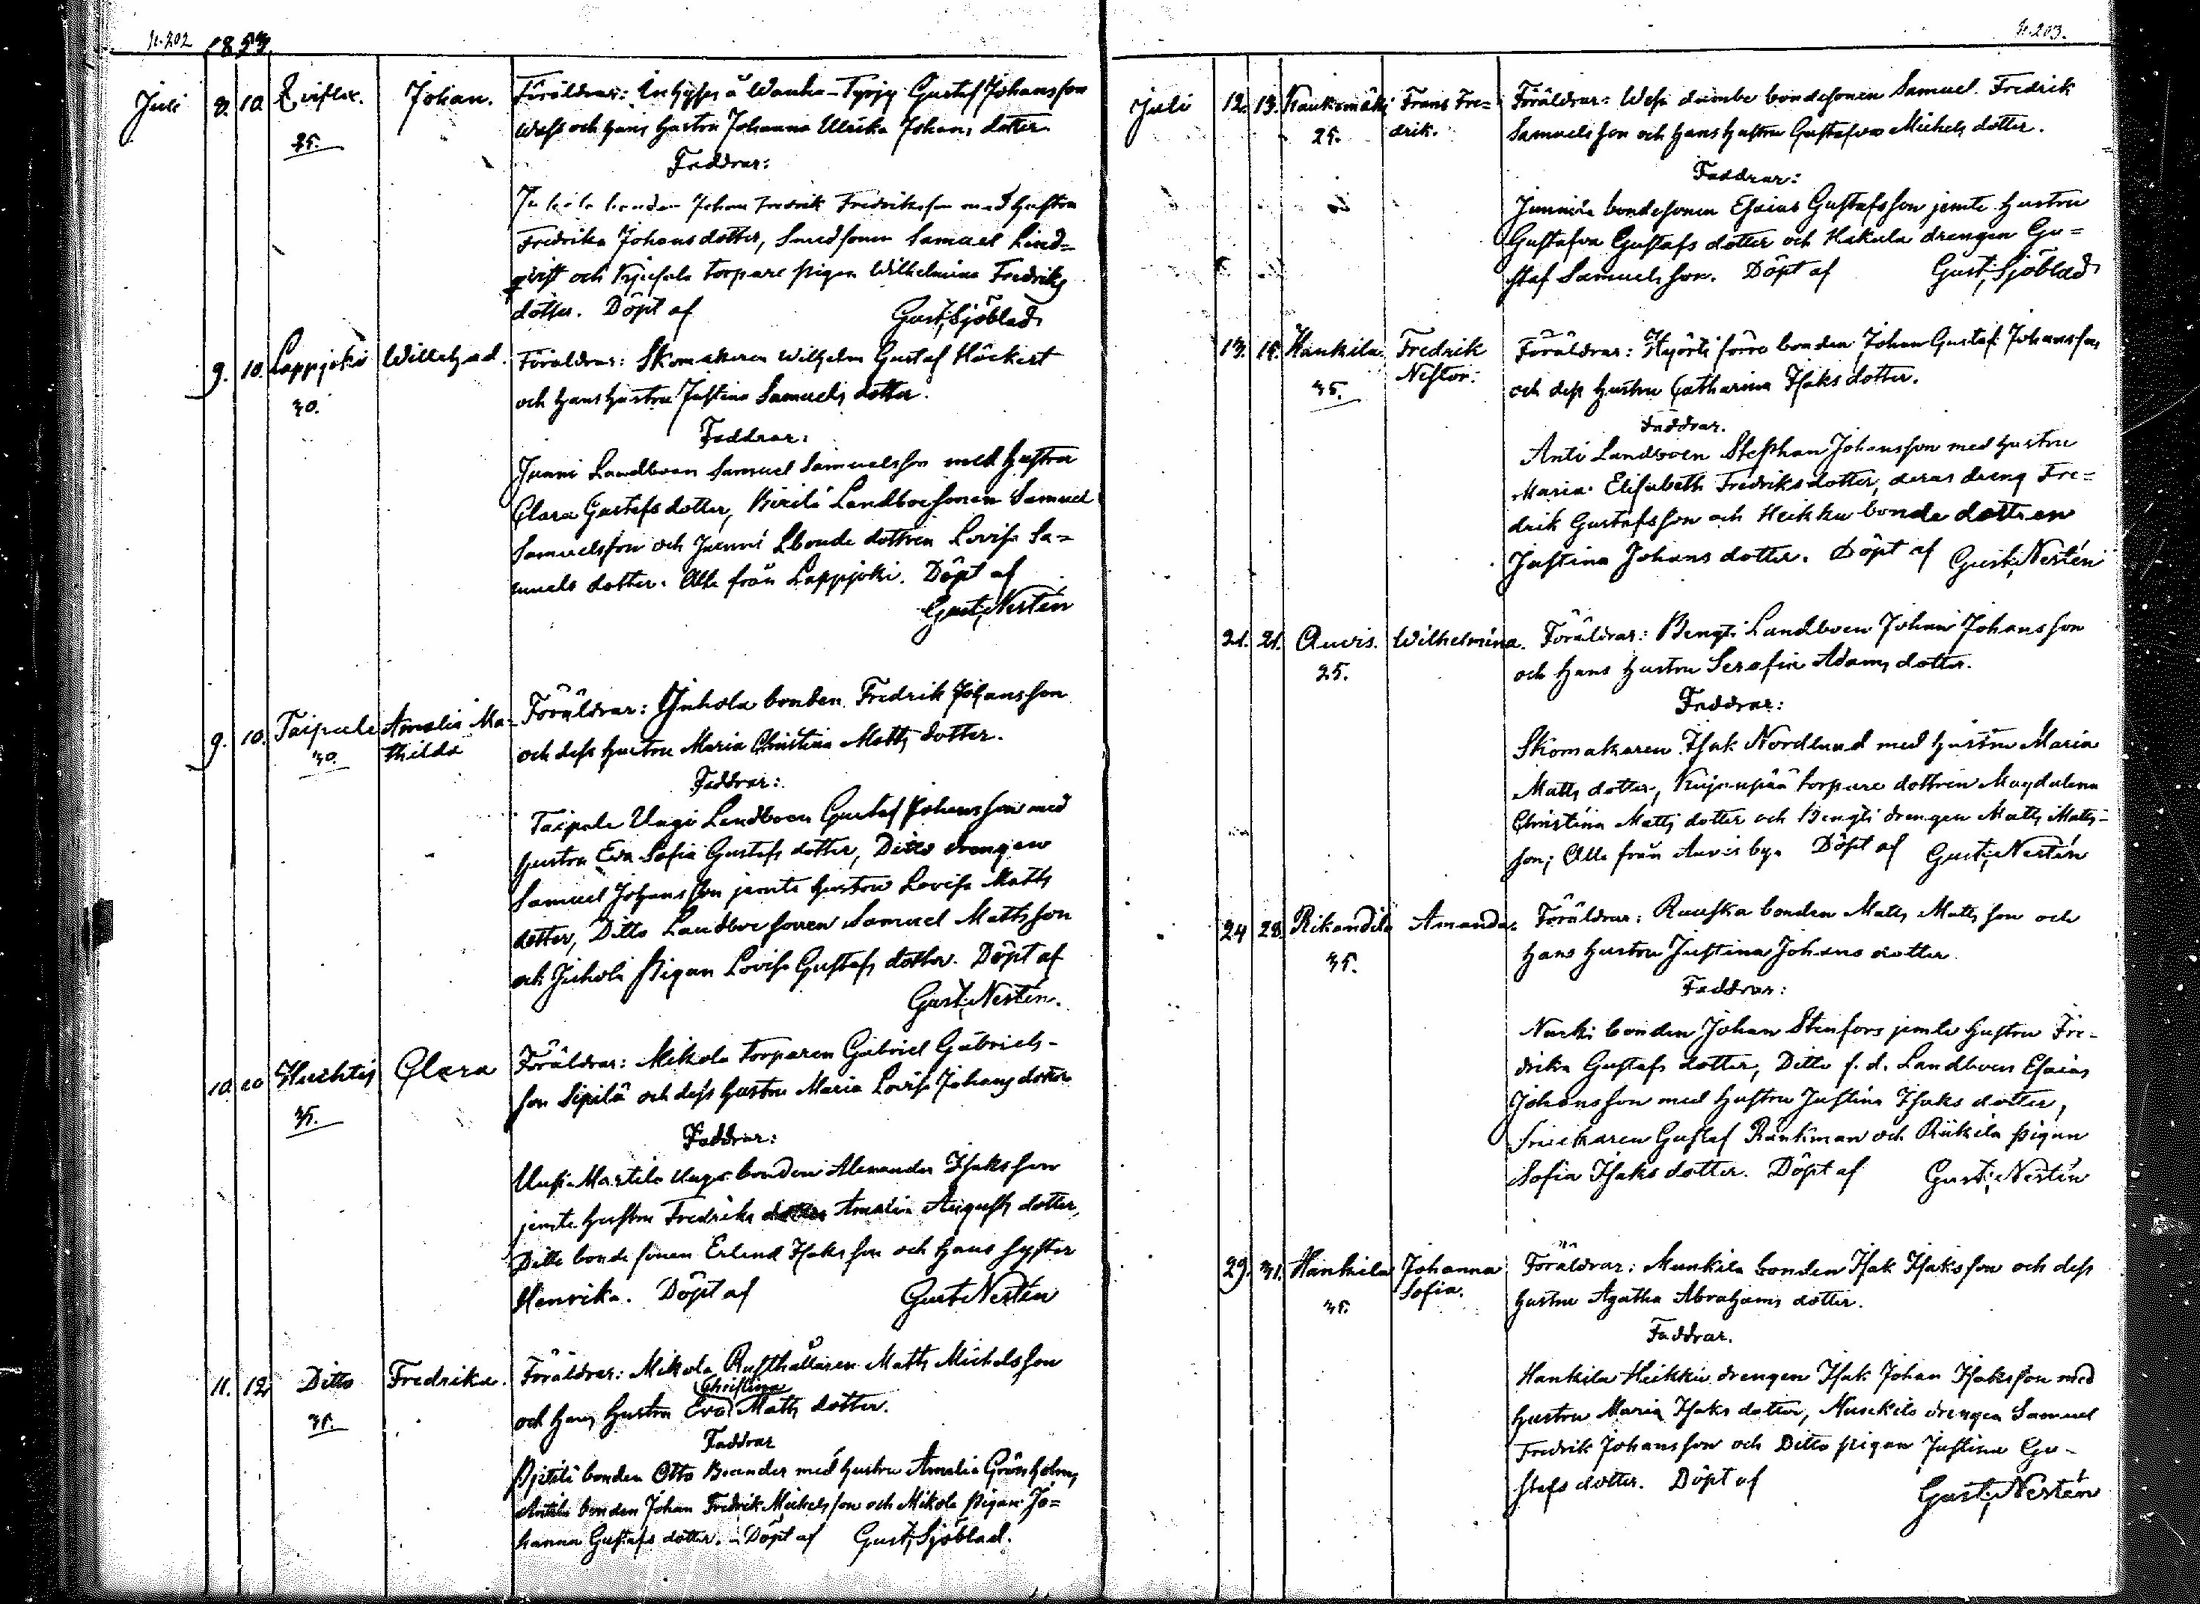 p. 202 1853.
Juli 8. 10. Johan. Föräldrar: Inhyses å Wanha-Tyrjy Gustaf Johansson
25. och hans hustru Johanna Ulrika Johans dotter
Faddrar:
bonden Johan Fredrik Fredriksson med hustru
Fredrika Johansdotter, Smedsonen Samuel Lind=
qvist och torpare pigan Wilhelmina Fredriks
dotter. Döpt af Gust. Sjöblad
9. 10. Lappjoki Willehad. Föräldrar: Skomakaren Wilhelm Gustaf Höckert
30. och hans hustru Justina Samuels dotter.
Faddrar:
Junni Landboen Samuel Samuelsson med hustru
Clara Gustafs dotter, Pirilä Landboesonen Samuel
Samuelsson och Junni Lbonde dottren Lovisa Sa=
muels dotter. Alla från Lappjoki. Döpt af
Gust. Nestén
9. 10. Taipale Amalia Ma- Föräldrar: Inhola bonden Fredrik Johansson
30. thilda och dess hustru Maria Christina Matts dotter.
Faddrar:
Taipale Ungi Landboen Gustaf Johansson med
hustru Eva Sofia Gustafs dotter, Ditto drengen
Samuel Johansson jemte hustru Lovisa Matts
dotter, Ditto Landboesonen Samuel Mattsson
och pigan Lovisa Gustafs dotter. Döpt af
Gust. Nestén.
10. 10 Huchtis Clara Föräldrar: Mikola torparen Gabriel Gabriels-
35. son Sipilä och dess hustru Maria Lovisa Johans dotter
Faddrar:
Uusi-Martila unga bonden Alexander Isaksson
jemte hustru Fredrika Amalia Augusts dotter,
Ditto bonde sonen Erland Isaksson och hans syster
Henrika. Döpt af Gust. Nestén
11. 12 Ditto Fredrika. Föräldrar: Mikola Rusthållaren Matts Michelsson
Christina
35. och hans hustru Eva Matts dotter.
Faddrar
bonden Otto Brander med hustru Amalia Grönholm,
Anttila bonden Johan Fredrik Michelsson och Mikola pigan Jo=
hanna Gustafs dotter. Döpt af Gust. Sjöblad.
p. 203.
Juli 12. 13. Kaukomäki Frans Fre= Föräldrar: döfdumbe bondesonen Samuel Fredrik
25. drik. Samuelsson och hans hustru Gustafva Michels dotter.
Faddrar:
Junnila bondesonen Esaias Gustafsson jemte hustru
Gustafva Gustafs dotter och Hakula drengen Gu=
staf Samuelsson. Döpt af Gust. Sjöblad
13. 15. Hankila Fredrik Föräldrar: Hyörti förre bonden Johan Gustaf Johansson
35. Nestor. och dess hustru Catharina Isaks dotter.
Faddrar.
Anti Landboen Stephan Johansson med hustru
Maria Elisabeth Fredriksdotter, deras dreng Fre-
drik Gustafsson och Heikku bonde dottren
Justina Johans dotter. Döpt af Gust. Nestén
21. 21. Auvis. Wilhelmina. Föräldrar: Bengti Landboen Johan Johansson
25. och hans hustru Serafia Adams dotter.
Faddrar:
Skomakaren Isak Nordlund med hustru Maria
Matts dotter, Kujanpää torpare dottren Magdalena
Christina Matts dotter och Bengti drengen Matts Matts-
son; Alla från Auvis by. Döpt af Gust. Nestén
24 28. Rikandila Amanda. Föräldrar: Rauska bonden Matts Mattsson och
35. hans hustru Justina Johans dotter
Faddrar:
Nurki bonden Johan Stenfors jemte hustru Fre-
drika Gustafs dotter, Ditto f. d. Landboen Esaias
Johansson med hustru Justina Isaks dotter,
Snickaren Gustaf Ränkman och Riikila pigan
Sofia Isaks dotter. Döpt af Gust. Nestén
29. 31. Hankila Johanna Föräldrar: Munkila bonden Isak Isaksson och dess
35. Sofia. hustru Agatha Abrahams dotter.
Faddrar.
Hankila Heikki drengen Isak Johan Isaksson med
hustru Maria Isaks dotter, drengen Samuel
Fredrik Johansson och Ditto pigan Justina Gu-
stafs dotter. Döpt af Gust. Nestén